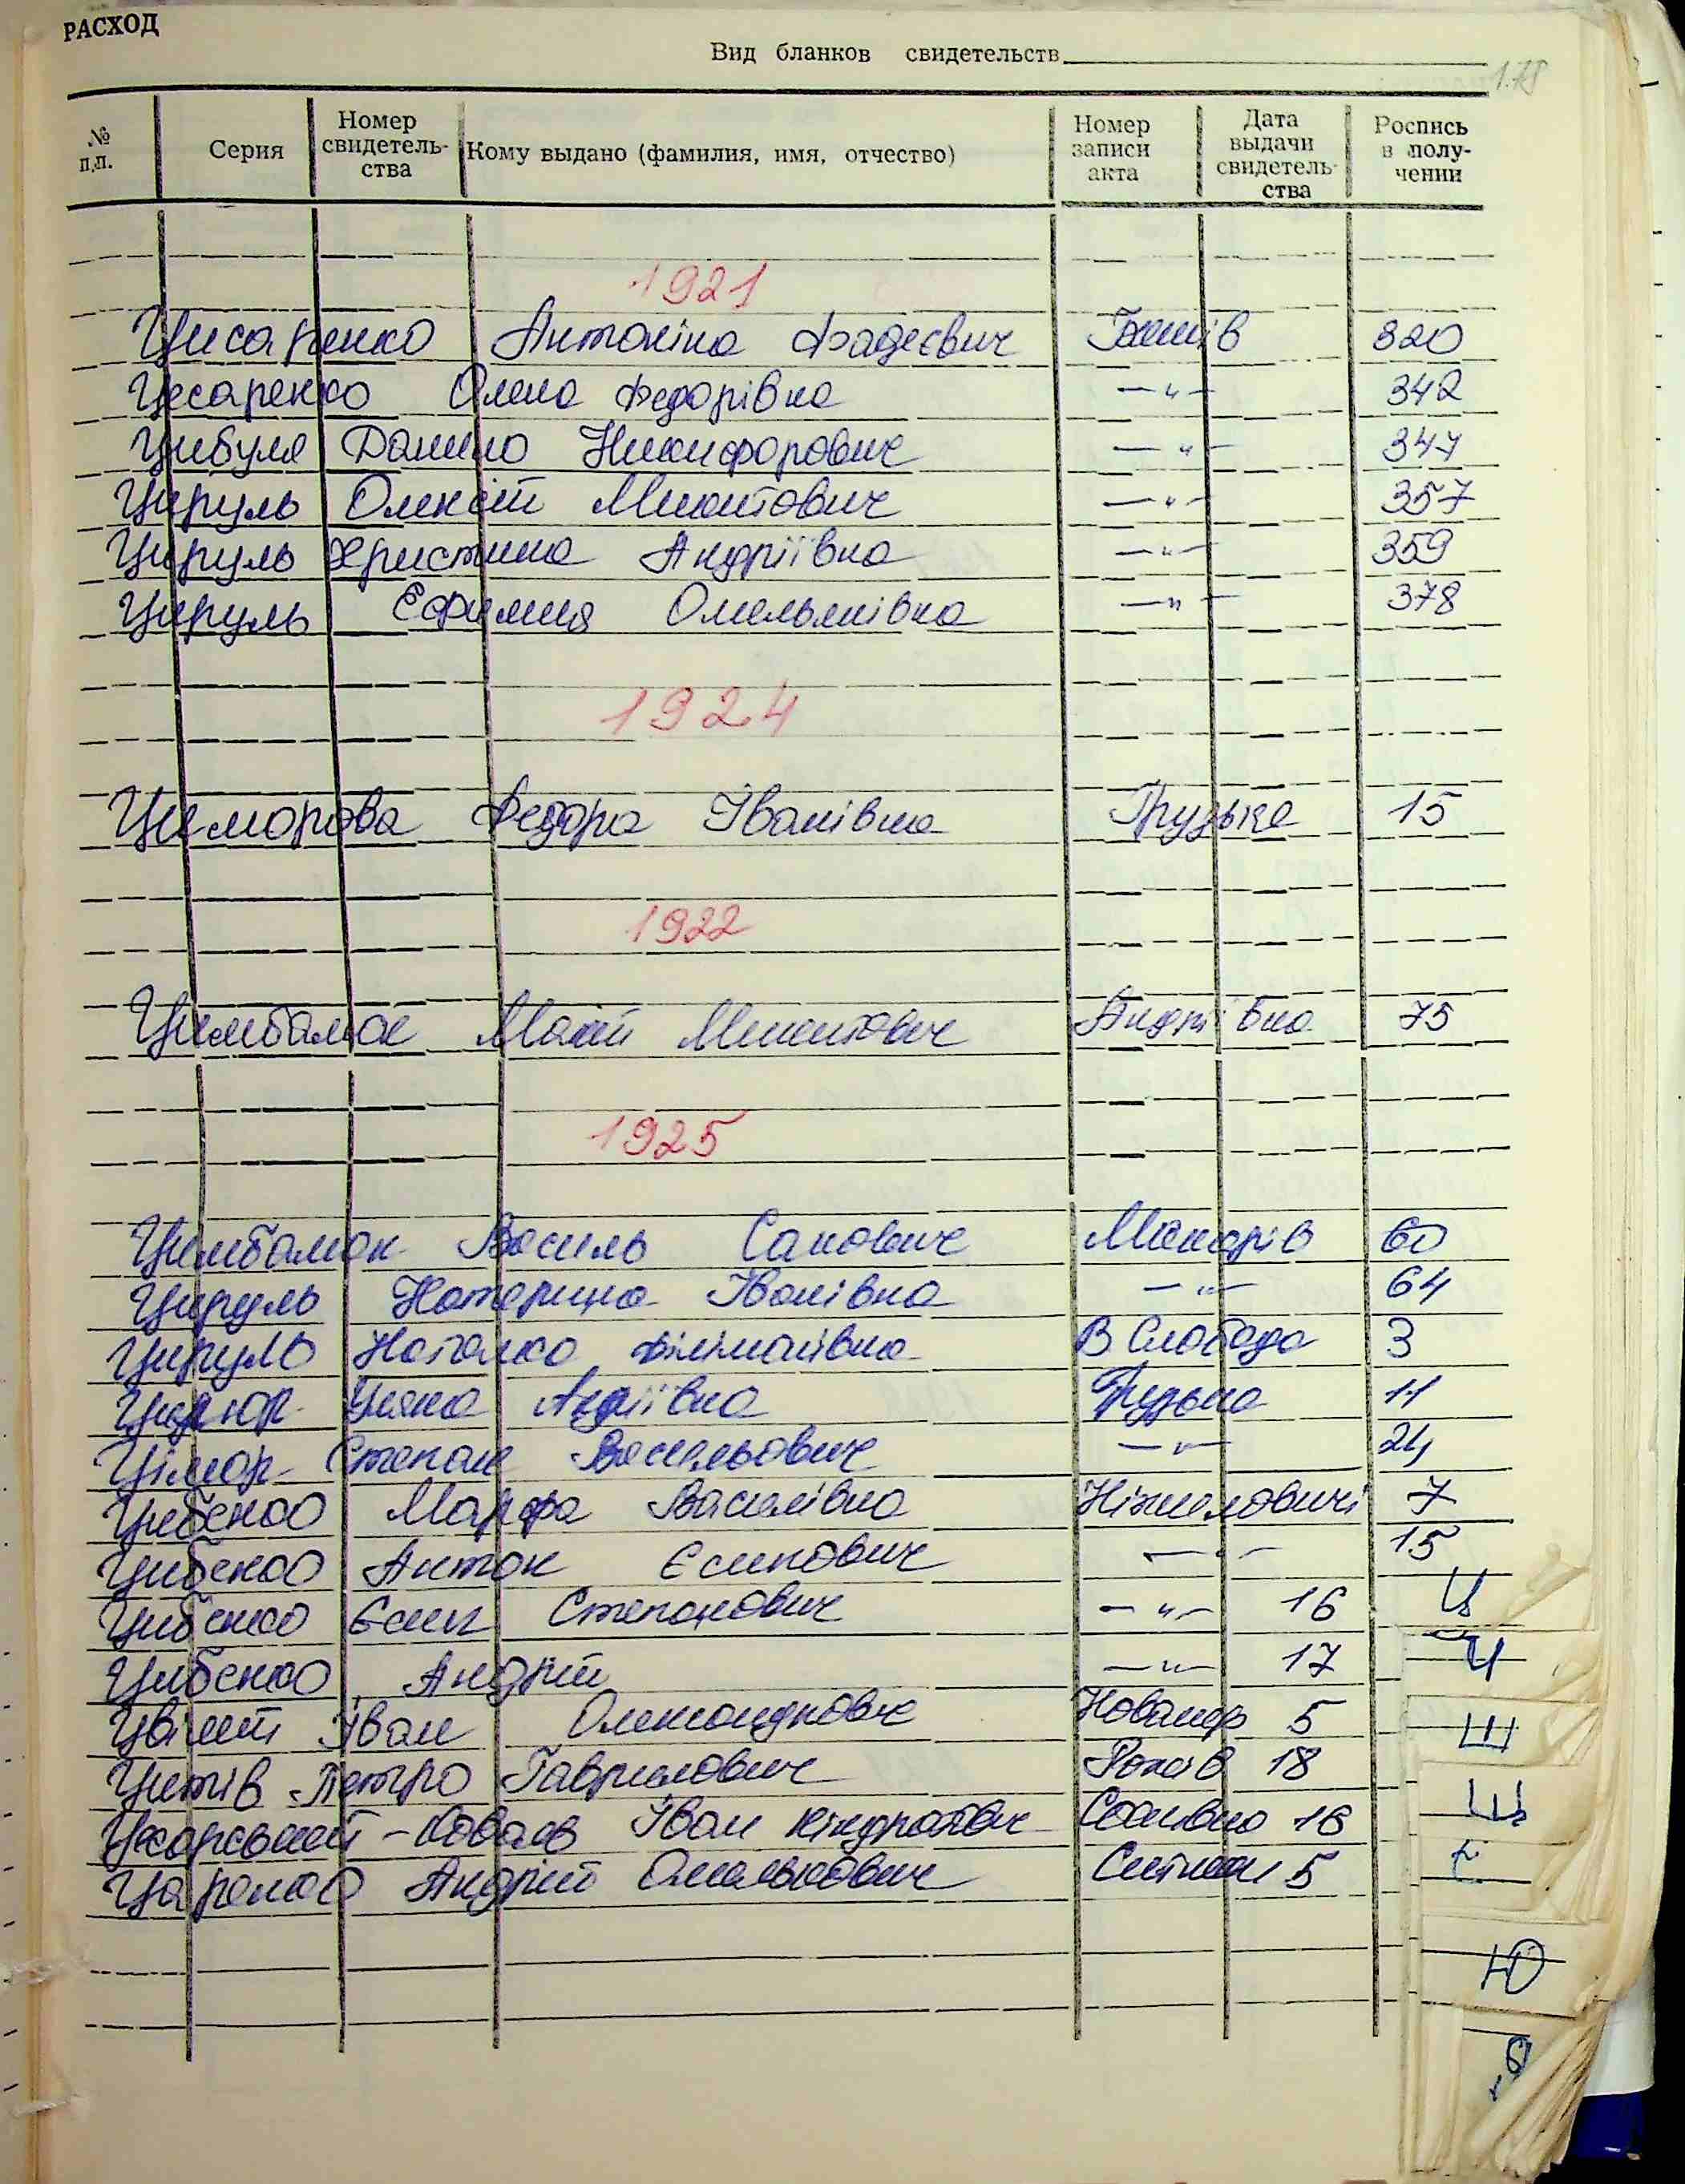 РАСХОД
Вид бланков свидетельств
178
№ п.п. Серия Номер свидетельства Кому выдано (фамилия, имя, отчество) Номер записи акта Дата выдачи свидетельства Роспись в получении
1921
Цисаренко Антоніна Фадеєвич 320
Цесаренко Олена Федорівна —"— 342
Цибуля Данило Никифорович —"— 347
Цируль Олексій Микитович —"— 357
Цируль Христина Андріївна —"— 359
Цируль Єфимия Омельянівна —"— 378
1924
Циморова Федора Іванівна Грузька 15
1922
Цимбалюк Микитович Андріївка 75
1925
Цимбалюк Василь Сакович Макарів 60
Цируль Катерина Іванівна —"— 64
Цируль Наталка Філімонівна В Слобода 3
Уляна Андріївна Грузька 11
Цімор Степан Васильович —"— 24
Цибенко Марфа Василівна Ніжиловичі 7
Цибенко Антон Єсипович —"— 15
Цибенко Єсип Степанович —"— 16
Цибенко Андрій —"— 17
Іван Олександрович 5
Петро Гаврилович 18
Іван Кіндратович 16
Андрій Омелькович Ситняки 5
Ц
Ч
Ш
Щ
Є
Ю
Я